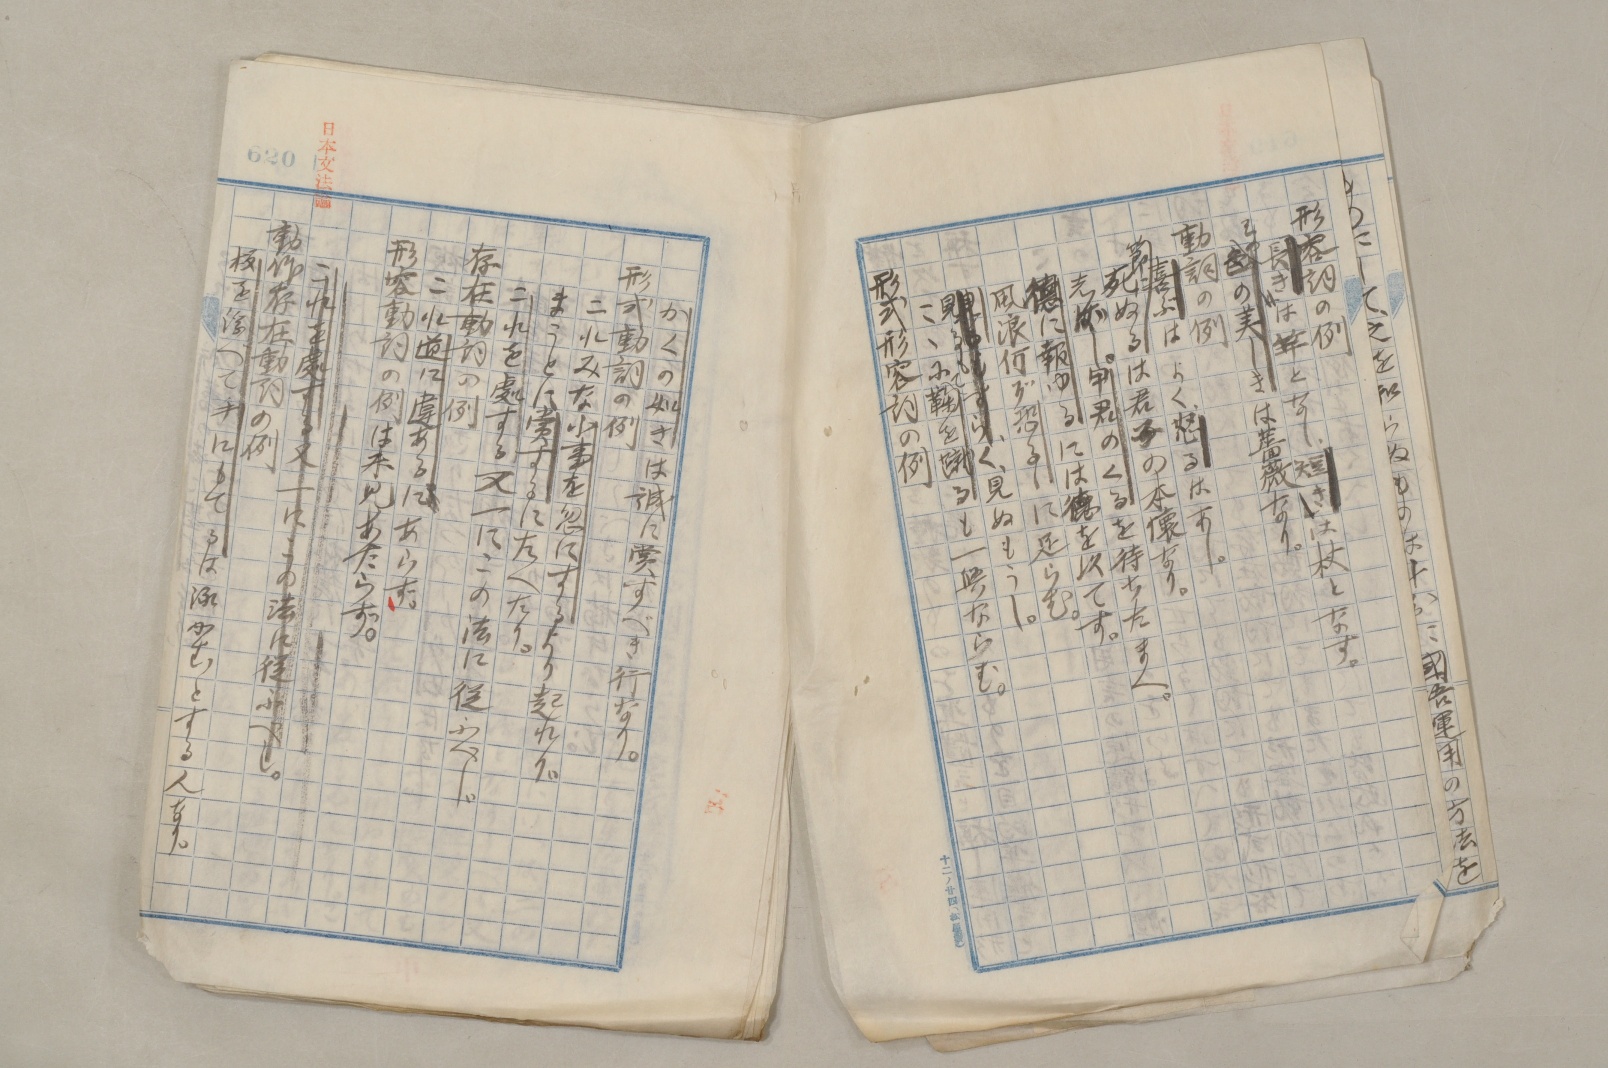 ものにして、之を知らぬものは十分に國語運用の方法を
形容詞の例
長きは竿となし、短きは杖となす。
色の美しきは薔薇なり。
動詞の例
喜ぶはよく、怒るはあし。
死ぬるは君子の本懐なり。
君のくるを待ちたまへ。
徳に報ゆるには徳を以てす。
風浪何ぞ恐るゝに足らむ。
見るもうく、見ぬもうし。
こゝに鞠を蹴るも一興ならむ。
形式形容詞の例
かくの如きは誠に賞すべき行なり。
形式動詞の例
これみな小事を忽にするより起れり。
まことに賞するにたへたり。
これを處する又一にこの法に從ふべし。
存在動詞の例
これ道に違あるにあらず。
形容動詞の例は未見あたらず。
これを處する又一にこの法に從ふべし。
動作存在動詞の例
日本文法論
620